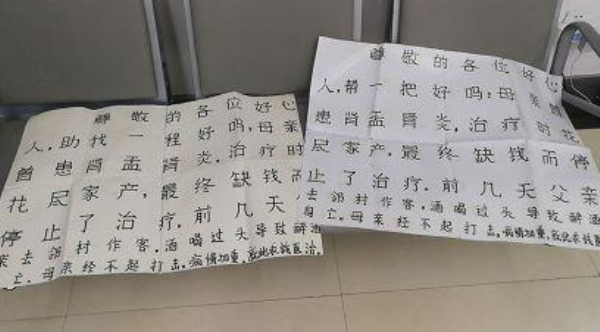 尊敬的各位好心
人,助找一程好吗,母亲
曾患肾盂肾炎,治疗时
花尽家产,最终缺钱而
停止了治疗.前几天
亲去邻村作客,酒喝过头导致醉酒
亡.母亲经不起打击.病情加重,求钱医治.
尊敬的各位好心
人,帮一把好吗:母亲曾
患肾盂肾炎,治疗时花
尽家产,最终缺钱而停
止了治疗.前几天父亲
去邻村作客,酒喝过头导致醉酒
身亡.母亲经不起打击.病情加重,求钱医